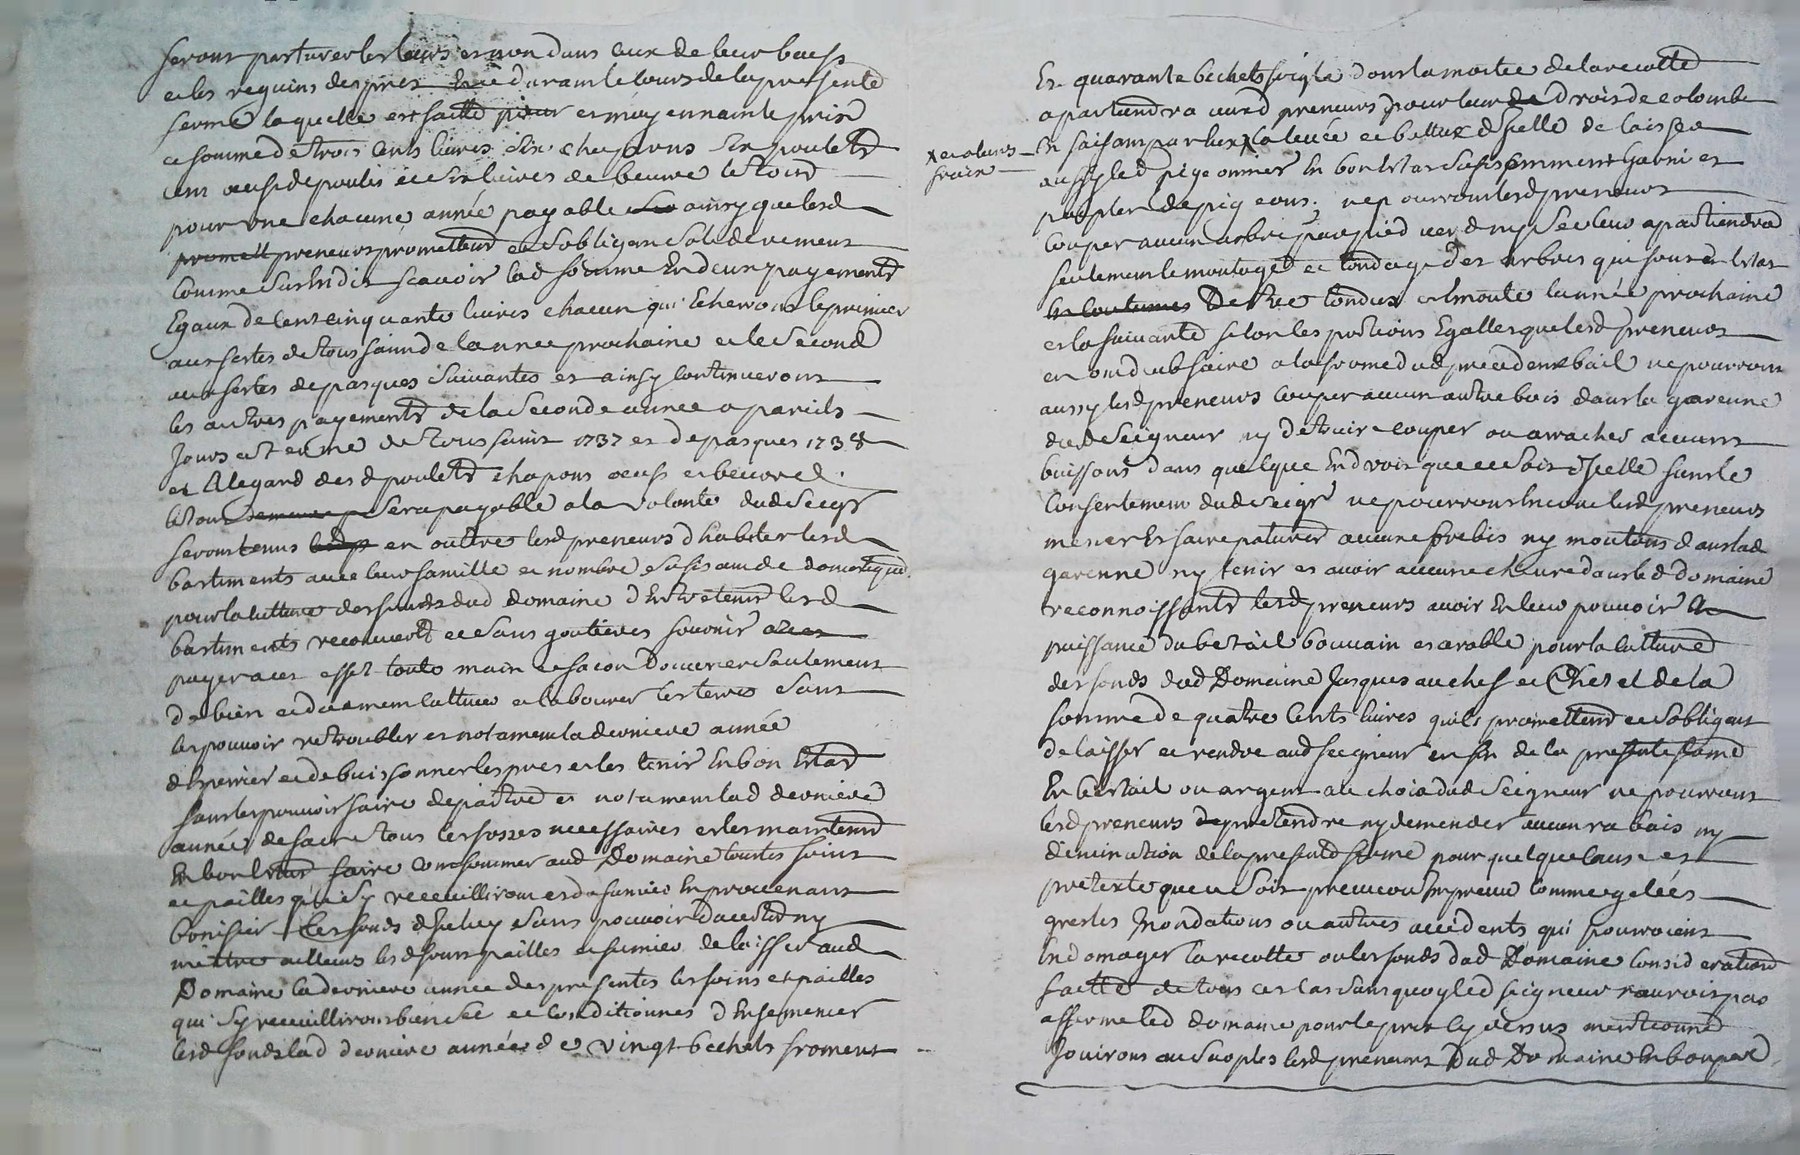 feront parturer les leurs et non dans ceux de leur baess
et les reguins des prés durant le cours de la presente
ferme laquelle est faitte et moyennant le prix
et somme de trois cents livres six chapons six poulets
cent oeufs de poules et six livres de beurre le tout
pour une chacune année payable ainsy que lesd
preneurs promettent et sobligent solidairement
comme sus est dit scavoir lad somme en deux payements
Egaux de cent cinquante livres chacun qui echerront le premier
aux festes de toussaint de lannee prochaine et le second
aux festes de pasques suivantes et ainsy continueront
les autres payements de la seconde annee a pareils
jours et terme de toussaint 1737 et de pasques 1738
et a legard desd poulets chapons oeufs et beurre
le tout sera payable a la volonté dud seigr
seront tenus en outtre lesd preneurs dhabiter lesd
bastiments avec leur famille et nombre suffisant de domestiques
pour la culture des fonds dud Domaine dentretenir lesd
bastiments recouverts et sans goutieres fournir
payer a cet effet toute main et facon douvrier seulement
de bien et duement culttiver et labourer les terres sans
les pouvoir retroubler et notament la derniere année
desperrier et de buissonner les pres et les tenir en bon Etat
sans les pouvoir faire depaitre et notament lad derniere
année de faire tous les fosses necessaires et les maintenir
en bon Etat faire consommer aud Domaine touttes foins
et pailles qui sy receuilliront et de fumier en provenant
bonifier les fonds dicheluy sans pouvoir ny
mettre ailleurs lesd foins pailles et fumier de laisser aud
Domaine la derniere année des presentes les foins et pailles
qui sy receuilliront bien sec et conditionnés densemencer
lesd fonds lad derniere année de vingt bechets froment
Et quarante bechets seigle dont la moitié de la recolte
apartiendra auxd preneurs pour leur droit de colombe
En faisant par eux la levée et battue dicelle de laisser
x et a leurs
fraix
aussy led pigeonnier en bon Etat suffisemment garni et
peupler de pigeons. ne pourront lesd preneurs
couper aucun arbre par pied verd ny sec leur apartiendra
seulement le montage et tondage des arbres qui sont en Etat
De Etre tondus et monté lannée prochaine
et la suivante selon les portions Egalles que lesd preneurs
en ont dub faire a la forme dud precedent bail ne pourront
aussy lesd preneurs couper aucun autre bois dans la garenne
dud Seigneur ny detruire couper ou arracher aucuns
buissons dans quelque Endroit que ce soit dicelle sans le
consentement dud Seigr ne pourront encore lesd preneurs
mener et faire paturer aucune brebis ny moutons dans lad
garenne ny tenir et avoir aucune chevre dans led domaine
reconnoissants lesd preneurs avoir en leur pouvoir
puissance du betail bouvain et arable pour la culture
des fonds dud Domaine jusques au chef et Chetel de la
somme de quatre cents livres quils promettent et sobligent
de laisser et rendre aud seigneur en fin de la presente ferme
En betail ou argent au choix dud Seigneur ne pourront
lesd preneurs pretendre ny demender aucun rabais ny
diminution de la presente ferme pour quelque cause et
pretexte que ce soit preveu ou impreveu comme gelées
gresles Inondations ou autres accidents qui pourroient
Endomager la recolte ou les fonds dud Domaine consideration
faitte de tous ces cas sans quoy led seigneur nauroit pas
affermé led domaine pour le prix cy dessus mentionné
jouiront au surplus lesd preneurs dud Domaine en bon pere